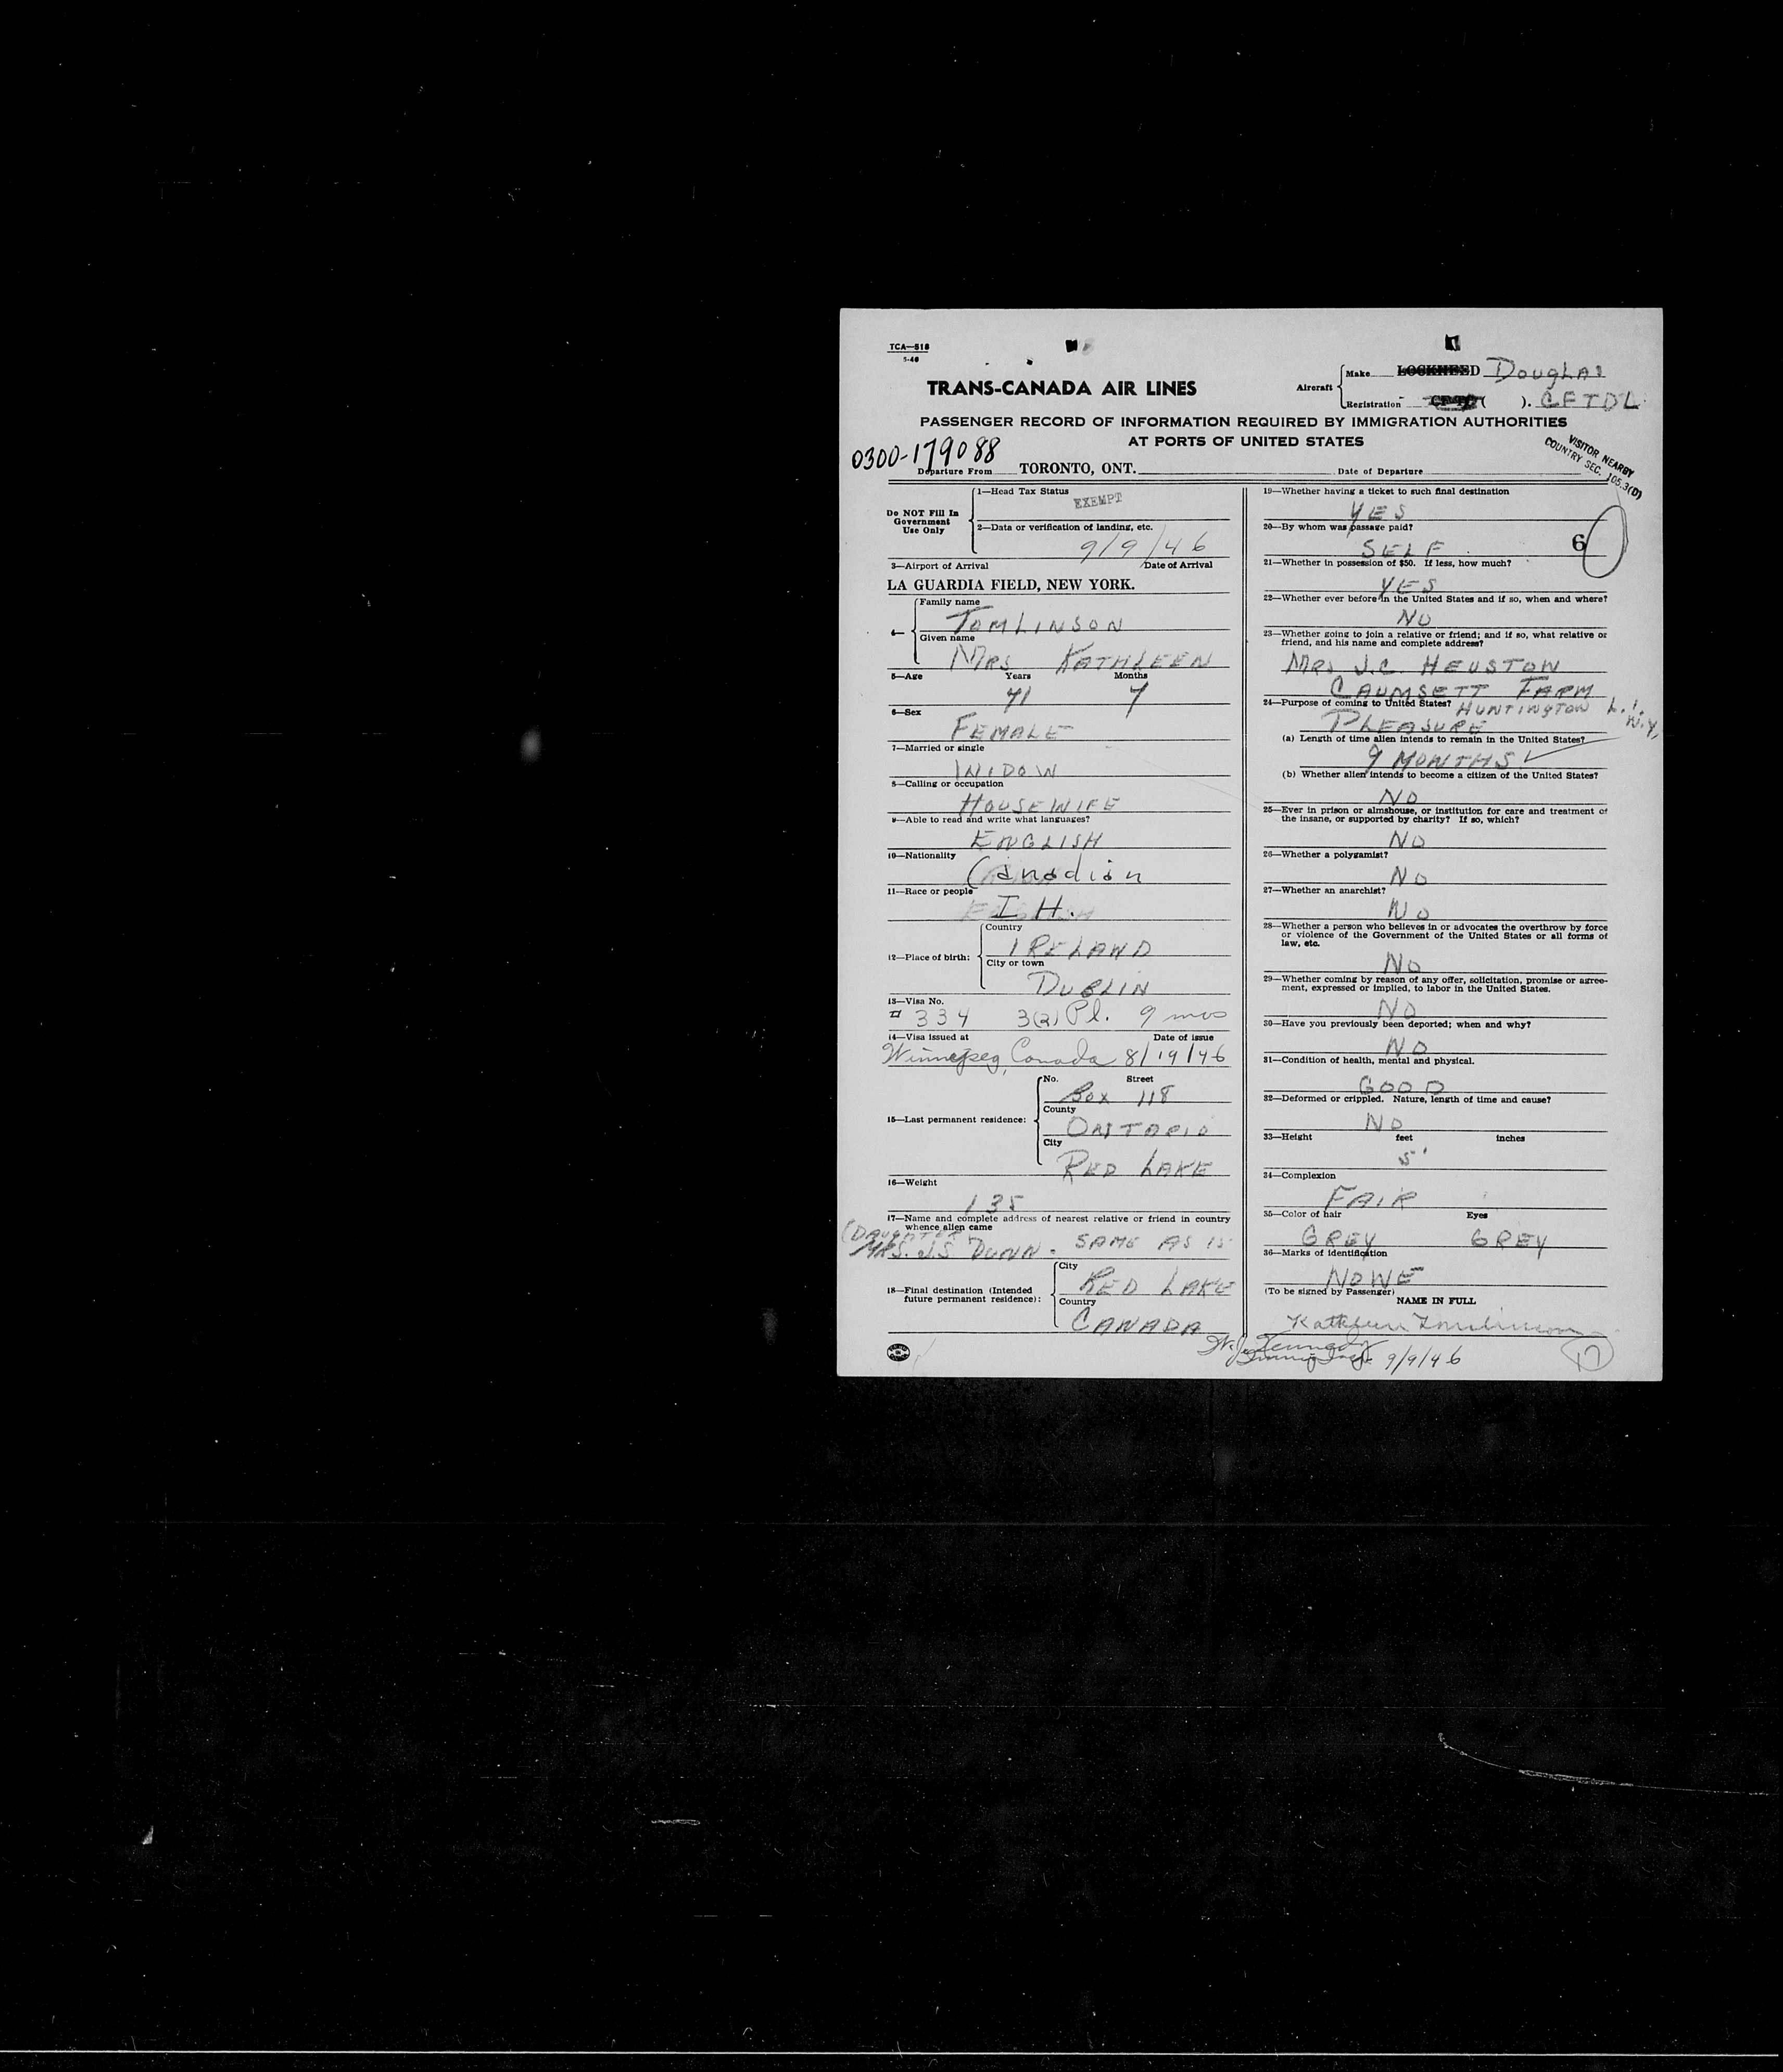 TCA—818
5-46
TRANS-CANADA AIR LINES
Aircraft
Make LOCKHEED DOUGLAS
Registration CF-TC ( ). CFTDL
PASSENGER RECORD OF INFORMATION REQUIRED BY IMMIGRATION AUTHORITIES
AT PORTS OF UNITED STATES
0300-179088
VISITOR NEARBY
COUNTRY SEC. 105.3(D)
Departure From TORONTO, ONT. Date of Departure
Do NOT Fill In
Government
Use Only
1—Head Tax Status
EXEMPT
2—Data or verification of landing, etc.
9/9/46
3—Airport of Arrival Date of Arrival
LA GUARDIA FIELD, NEW YORK.
4—
Family name
TOMLINSON
Given name
MRS KATHLEEN
5—Age Years Months
71 7
6—Sex
FEMALE
7—Married or single
WIDOW
8—Calling or occupation
HOUSEWIFE
9—Able to read and write what languages?
ENGLISH
10—Nationality
Canadian
11—Race or people
I H.
12—Place of birth:
Country
IRELAND
City or town
DUBLIN
13—Visa No.
# 334 3(2) Pl. 9 mos
14—Visa issued at Date of issue
Winnepeg, Canada 8/19/46
15—Last permanent residence:
No. Street
BOX 118
County
ONTARIO
City
RED LAKE
16—Weight
135
17—Name and complete address of nearest relative or friend in country
whence alien came
(DAUGHTER)
MRS. J.S. DUNN. SAME AS 15
18—Final destination (Intended
future permanent residence):
City
RED LAKE
Country
CANADA
19—Whether having a ticket to such final destination
YES
20—By whom was passage paid?
SELF
6
21—Whether in possession of $50. If less, how much?
YES
22—Whether ever before in the United States and if so, when and where?
NO
23—Whether going to join a relative or friend; and if so, what relative or
friend, and his name and complete address?
MRS J.C. HEUSTON
CAUMSETT FARM
HUNTINGTON L.I.
N.Y.
24—Purpose of coming to United States?
PLEASURE
(a) Length of time alien intends to remain in the United States?
9 MONTHS ✓
(b) Whether alien intends to become a citizen of the United States?
NO
25—Ever in prison or almshouse, or institution for care and treatment of
the insane, or supported by charity? If so, which?
NO
26—Whether a polygamist?
NO
27—Whether an anarchist?
NO
28—Whether a person who believes in or advocates the overthrow by force
or violence of the Government of the United States or all forms of
law, etc.
NO
29—Whether coming by reason of any offer, solicitation, promise or agree-
ment, expressed or implied, to labor in the United States.
NO
30—Have you previously been deported; when and why?
NO
31—Condition of health, mental and physical.
GOOD
32—Deformed or crippled. Nature, length of time and cause?
NO
33—Height feet inches
5'
34—Complexion
FAIR
35—Color of hair Eyes
GREY GREY
36—Marks of identification
NONE
(To be signed by Passenger)
NAME IN FULL
Kathleen Tomlinson
Kennedy
9/9/46